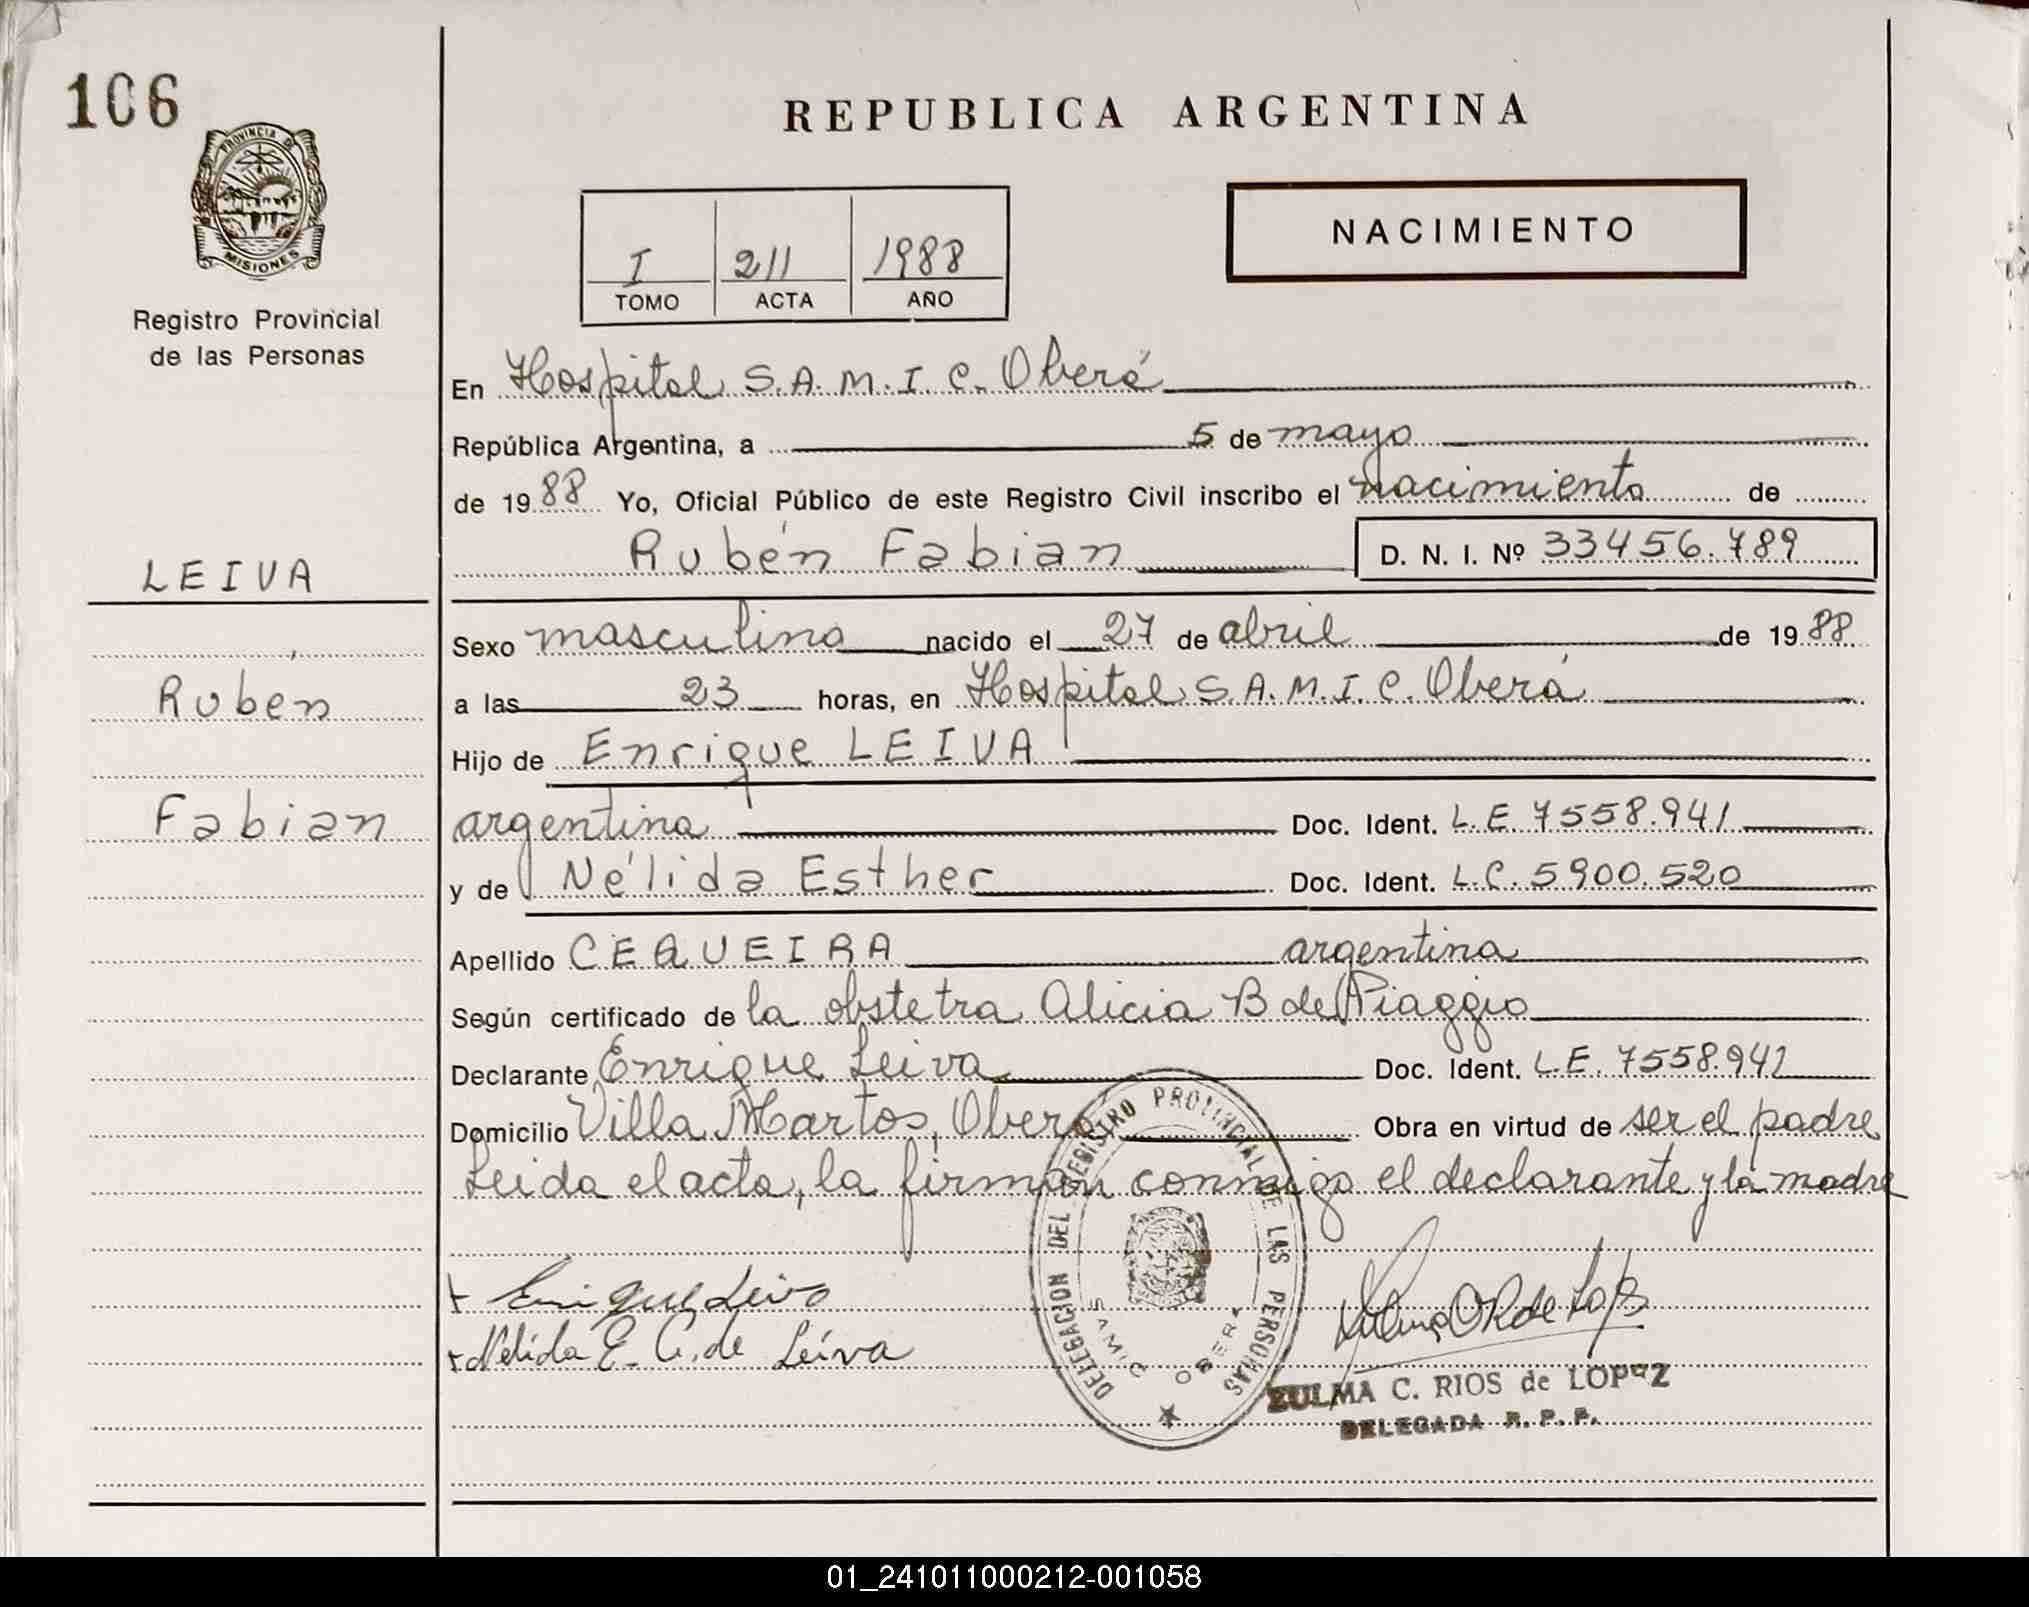 106
PROVINCIA DE
MISIONES
Registro Provincial
de las Personas
REPUBLICA ARGENTINA
I 211 1988
TOMO ACTA AÑO
NACIMIENTO
En Hospital S.A.M.I.C. Oberá
República Argentina, a 5 de mayo
de 1988 Yo, Oficial Público de este Registro Civil inscribo el nacimiento de
Rubén Fabian D. N. I. Nº 33456.789
LEIVA
Rubén
Fabian
Sexo masculino nacido el 27 de abril de 1988
a las 23 horas, en Hospital S.A.M.I.C. Oberá
Hijo de Enrique LEIVA
argentina Doc. Ident. L.E 7558.941
y de Nélida Esther Doc. Ident. L.C. 5900.520
Apellido CEQUEIRA argentina
Según certificado de la obstetra Alicia B de Piaggio
Declarante Enrique Leiva Doc. Ident. L.E. 7558.941
Domicilio Villa Martos, Oberá Obra en virtud de ser el padre
Leida el acta, la firman conmigo el declarante y la madre
Enrique Leiva
Nélida E. C. de Leiva
DELEGACION DEL REGISTRO PROVINCIAL DE LAS PERSONAS
SAMIC OBERA
ZULMA C. RIOS de LOPEZ
DELEGADA R. P. P.
01_241011000212-001058